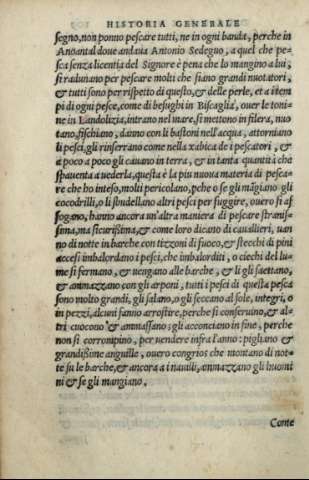 HISTORIA GENERALE
segno, non ponno pescare tutti, ne in ogni banda, perche in
Anoantal doue andaua Antonio Sedegno, a quel che pe-
sca senza licentia del Signore è pena che lo mangino a lui,
si radunano per pescare molti che siano grandi nuotatori,
& tutti sono per rispetto di questo, & delle perle, et a tem
pi di ogni pesce, come di besughi in Biscaglia, ouer le toni-
ne in Landolizia, intrano nel mare, si mettono in filera, nuo
tano, fischiano, danno con li bastoni nell'acqua, attorniano
li pesci, gli rinserrano come nella xabica de i pescatori, &
a poco a poco gli cauano in terra, & in tanta quantità che
spauenta a uederla, questa è la piu nuoua materia di pesca-
re che ho inteso, molti pericolano, pche o se gli mãgiano gli
cocodrilli, o li sbudellano altri pesci per fuggire, ouero si af
fogano, hanno ancora un'altra maniera di pescare stranis-
sima, ma sicurissima, & come loro dicano di caualieri, uan
no di notte in barche con tizzoni di fuoco, & stecchi di pini
accesi imbalordano i pesci, che imbalorditi, o ciechi del lu-
me si fermano, & uengano alle barche, & li gli saettano,
& ammazzano con gli arponi, tutti i pesci di questa pesca
sono molto grandi, gli salano, o gli seccano al sole, integri, o
in pezzi, alcuni fanno arrostire, perche si conseruino, & al-
tri cuocono & ammassano; gli acconciano in fine, perche
non si corrompino, per uendere infra l'anno: pigliano &
grandissime anguille, ouero congrios che montano di not-
te su le barche, & ancora a i nauili, ammazzano gli huomi
ni & se gli mangiano.
Conte